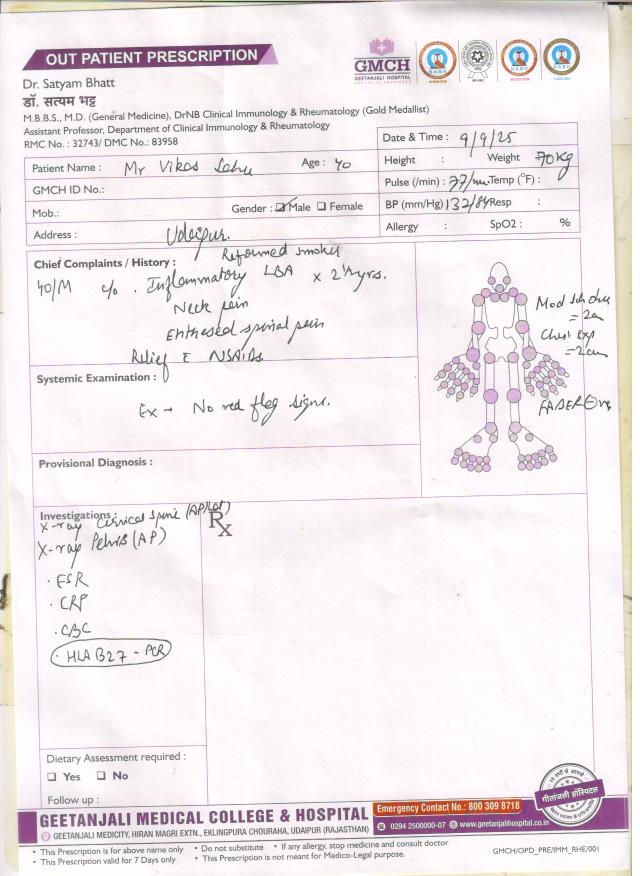 OUT PATIENT PRESCRIPTION
GMCH
GEETANJALI HOSPITAL
Dr. Satyam Bhatt
डॉ. सत्यम भट्ट
M.B.B.S., M.D. (General Medicine), DrNB Clinical Immunology & Rheumatology (Gold Medallist)
Assistant Professor, Department of Clinical Immunology & Rheumatology
RMC No. : 32743/ DMC No.: 83958
Date & Time : 9/9/25
Patient Name : Mr Vikas Sahu Age : 40
Height : Weight 70kg
GMCH ID No.:
Pulse (/min) : 77/min Temp (°F) :
Mob.: Gender : ☑ Male ☐ Female
BP (mm/Hg) 132/84 Resp :
Address : Udaipur.
Allergy : SpO2 : %
Reformed smoker
Chief Complaints / History :
40/M c/o . Inflammatory LBA x 2½yrs.
Neck pain
spinal pain
Relief c NSAIDs
= 2cm
Chest Exp
= 2cm
FABER
Systemic Examination :
Ex → No red flag signs.
Provisional Diagnosis :
Investigations :
X-ray Cervical Spine (AP/Lat)
Rx
X-ray Pelvis (AP)
· ESR
· CRP
· CBC
· HLA B27 - PCR
Dietary Assessment required :
☐ Yes ☐ No
Follow up :
गीतांजली हॉस्पिटल
GEETANJALI MEDICAL COLLEGE & HOSPITAL
Emergency Contact No.: 800 309 8718
GEETANJALI MEDICITY, HIRAN MAGRI EXTN., EKLINGPURA CHOURAHA, UDAIPUR (RAJASTHAN)
0294 2500000-07 www.geetanjalihospital.co.in
• This Prescription is for above name only • Do not substitute • If any allergy, stop medicine and consult doctor
• This Prescription valid for 7 Days only • This Prescription is not meant for Medico-Legal purpose.
GMCH/OPD_PRE/IMM_RHE/001